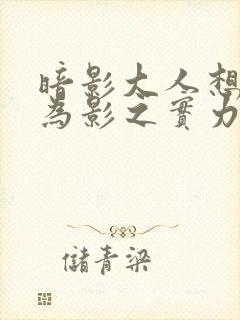 暗影大人想
為影之實力
儲青梁